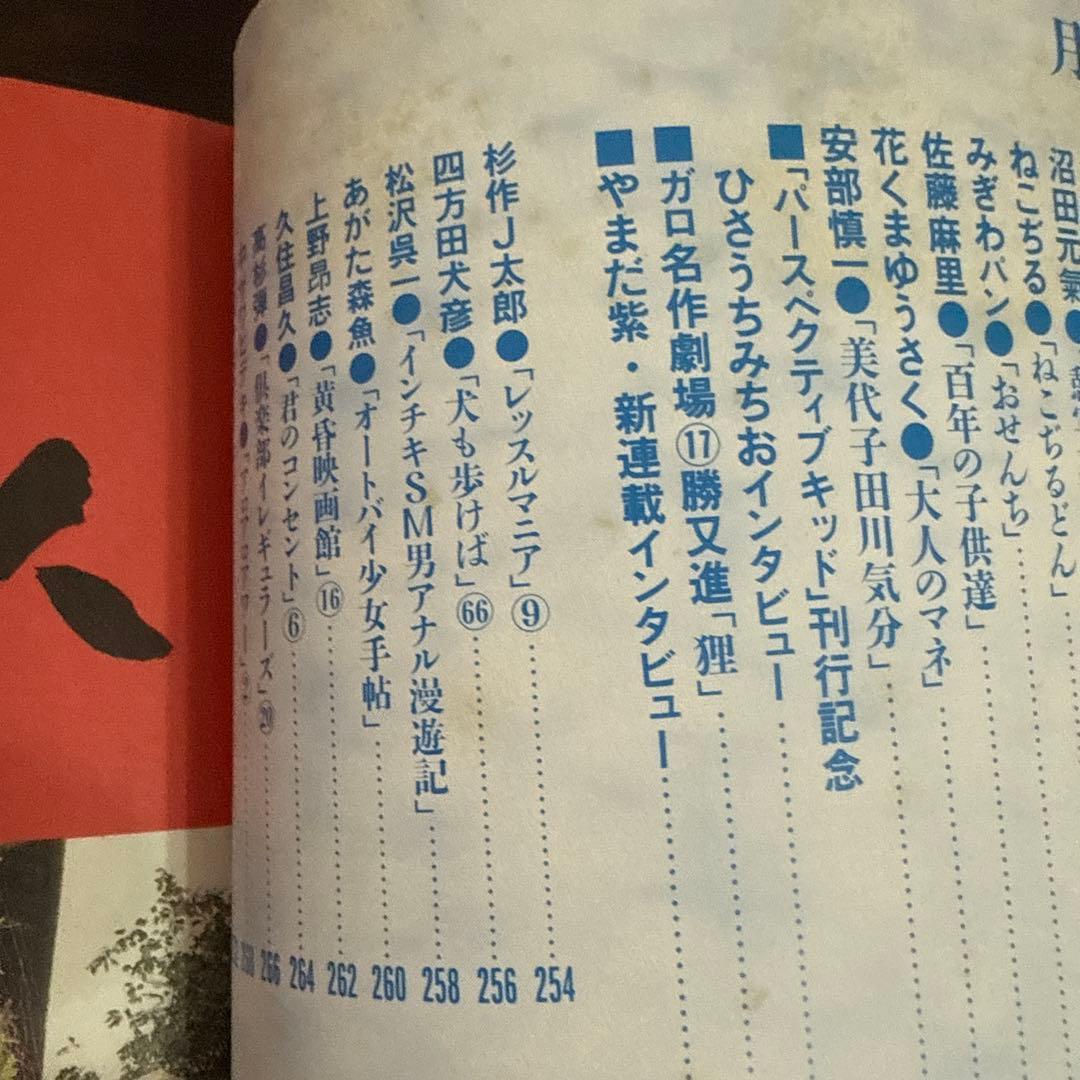 沼田元氣●
ねこぢる●「ねこぢるどん」
みぎわパン●「おせんち」
佐藤麻里●「百年の子供達」
花くまゆうさく●「大人のマネ」
安部慎一●「美代子田川気分」
■「パースペクティブキッド」刊行記念
ひさうちみちおインタビュー
■ガロ名作劇場⑰勝又進「狸」
■やまだ紫・新連載インタビュー
杉作J太郎●「レッスルマニア」⑨ 254
四方田犬彦●「犬も歩けば」66 256
松沢呉一●「インチキSM男アナル漫遊記」 258
あがた森魚●「オートバイ少女手帖」 260
上野昂志●「黄昏映画館」⑯ 262
久住昌久●「君のコンセント」⑥ 264
高杉弾●「倶楽部イレギュラーズ」⑳ 266